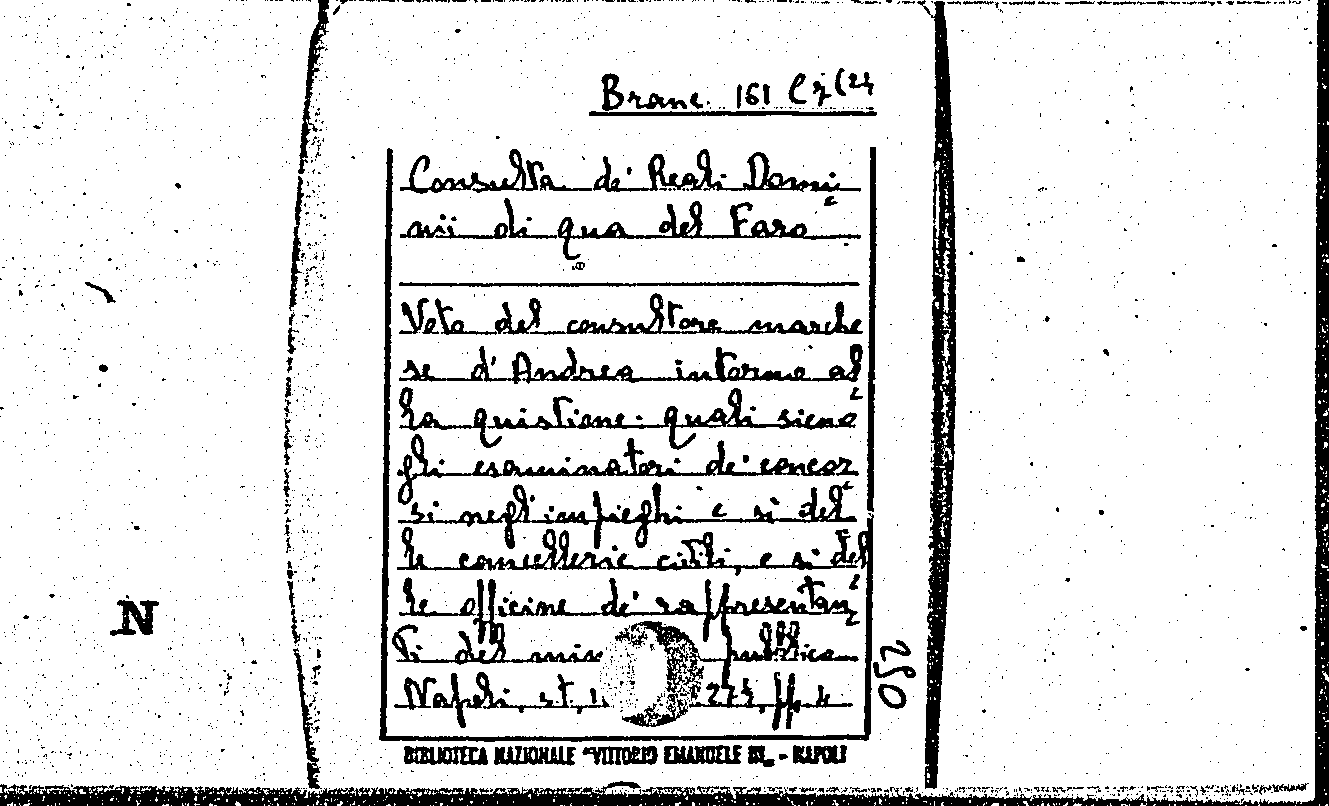 Branc. 161 C
Consulta de' Reali Domi
nii di qua del Faro
Voto del consultore marche
se d'Andrea intorno al
la quistione: quali sieno
gli esaminatori de' concor
si negl'impieghi e si del
le cancellerie civili, e si del
le officine de' rappresentan
ti del pubblico
Napoli, st.,
N
250
BIBLIOTECA NAZIONALE "VITTORIO EMANUELE III" - NAPOLI